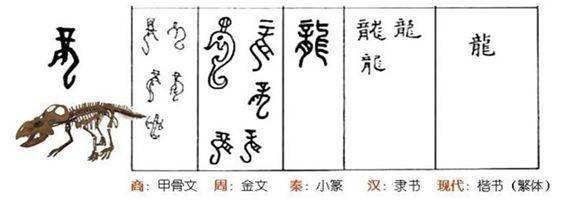 龍
龍 龍
龍
龍
商：甲骨文 周：金文 秦：小篆 汉：隶书 现代：楷书（繁体）